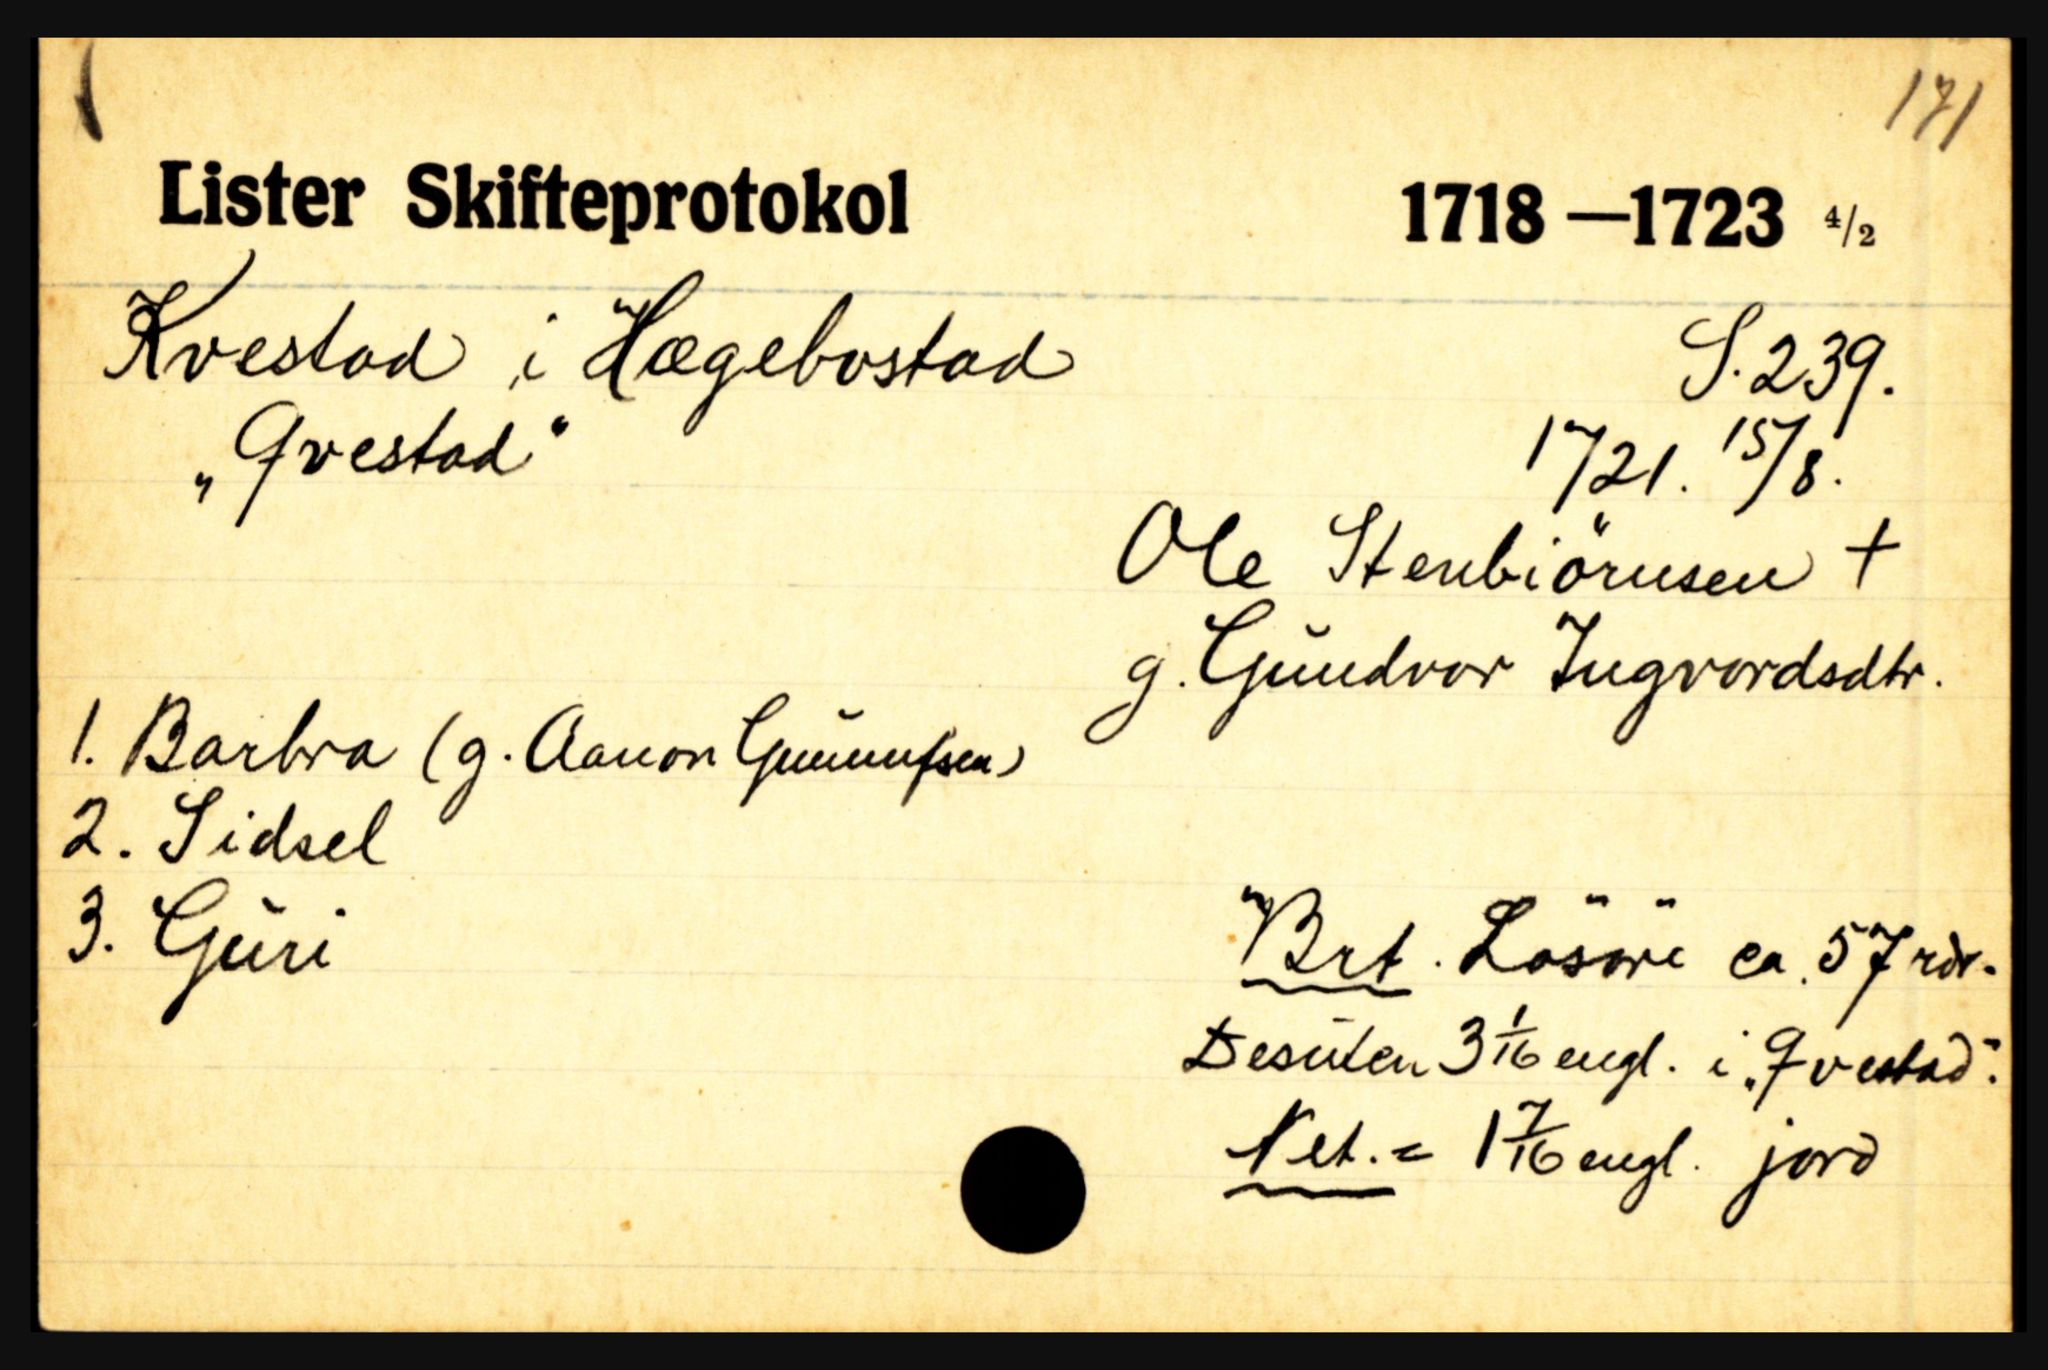 171
Lister Skifteprotokol 1718—1723 4/2
Kvestad i Hægebostad S. 239.
„Qvestad“ 1721. 15/8.
Ole Stenbiörnsen +
g. Gŭndvor Ingvordsdtr.
1. Barbra (g. Aanon Gŭnnufsen)
2. Sidsel
3. Gŭri
Brt. Lösöre ca. 57 rdr.
Desŭten 3 1/16 engl. i „Qvestad“.
Net. = 1 7/16 engl. jord